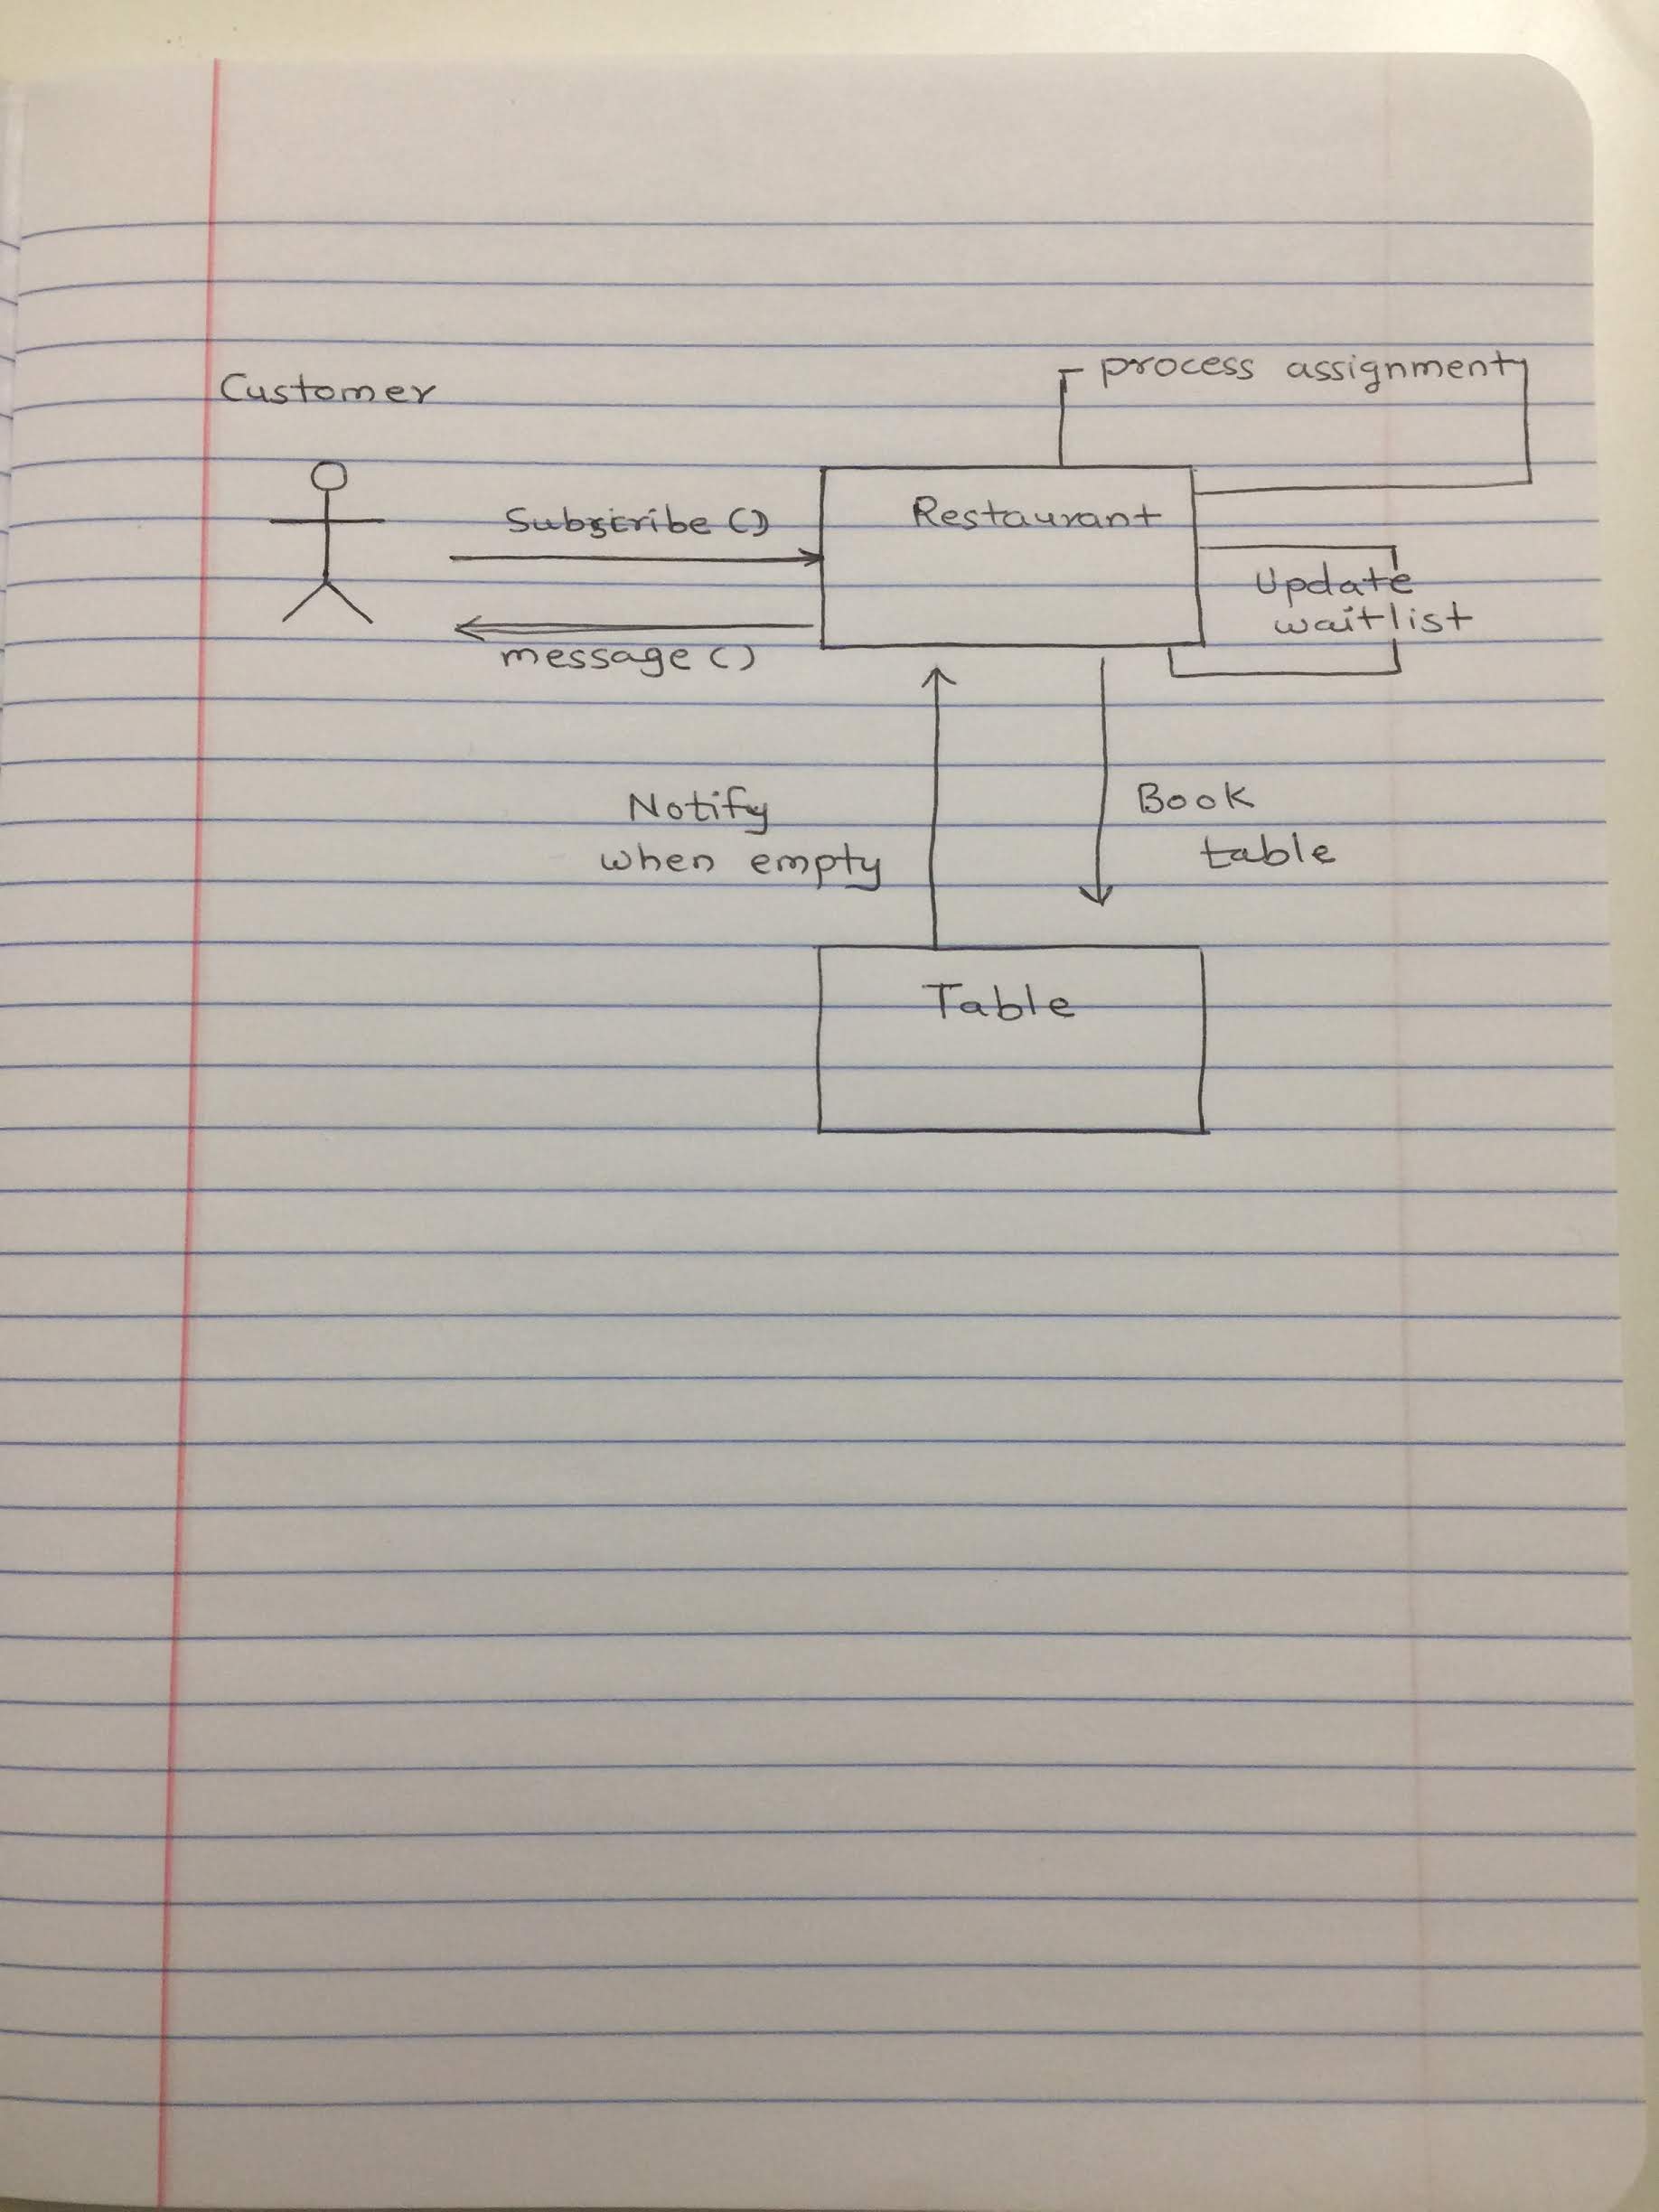 process assignment
Customer
Subscribe ()
Restaurant
Update
waitlist
message ()
Notify
when empty
Book
table
Table